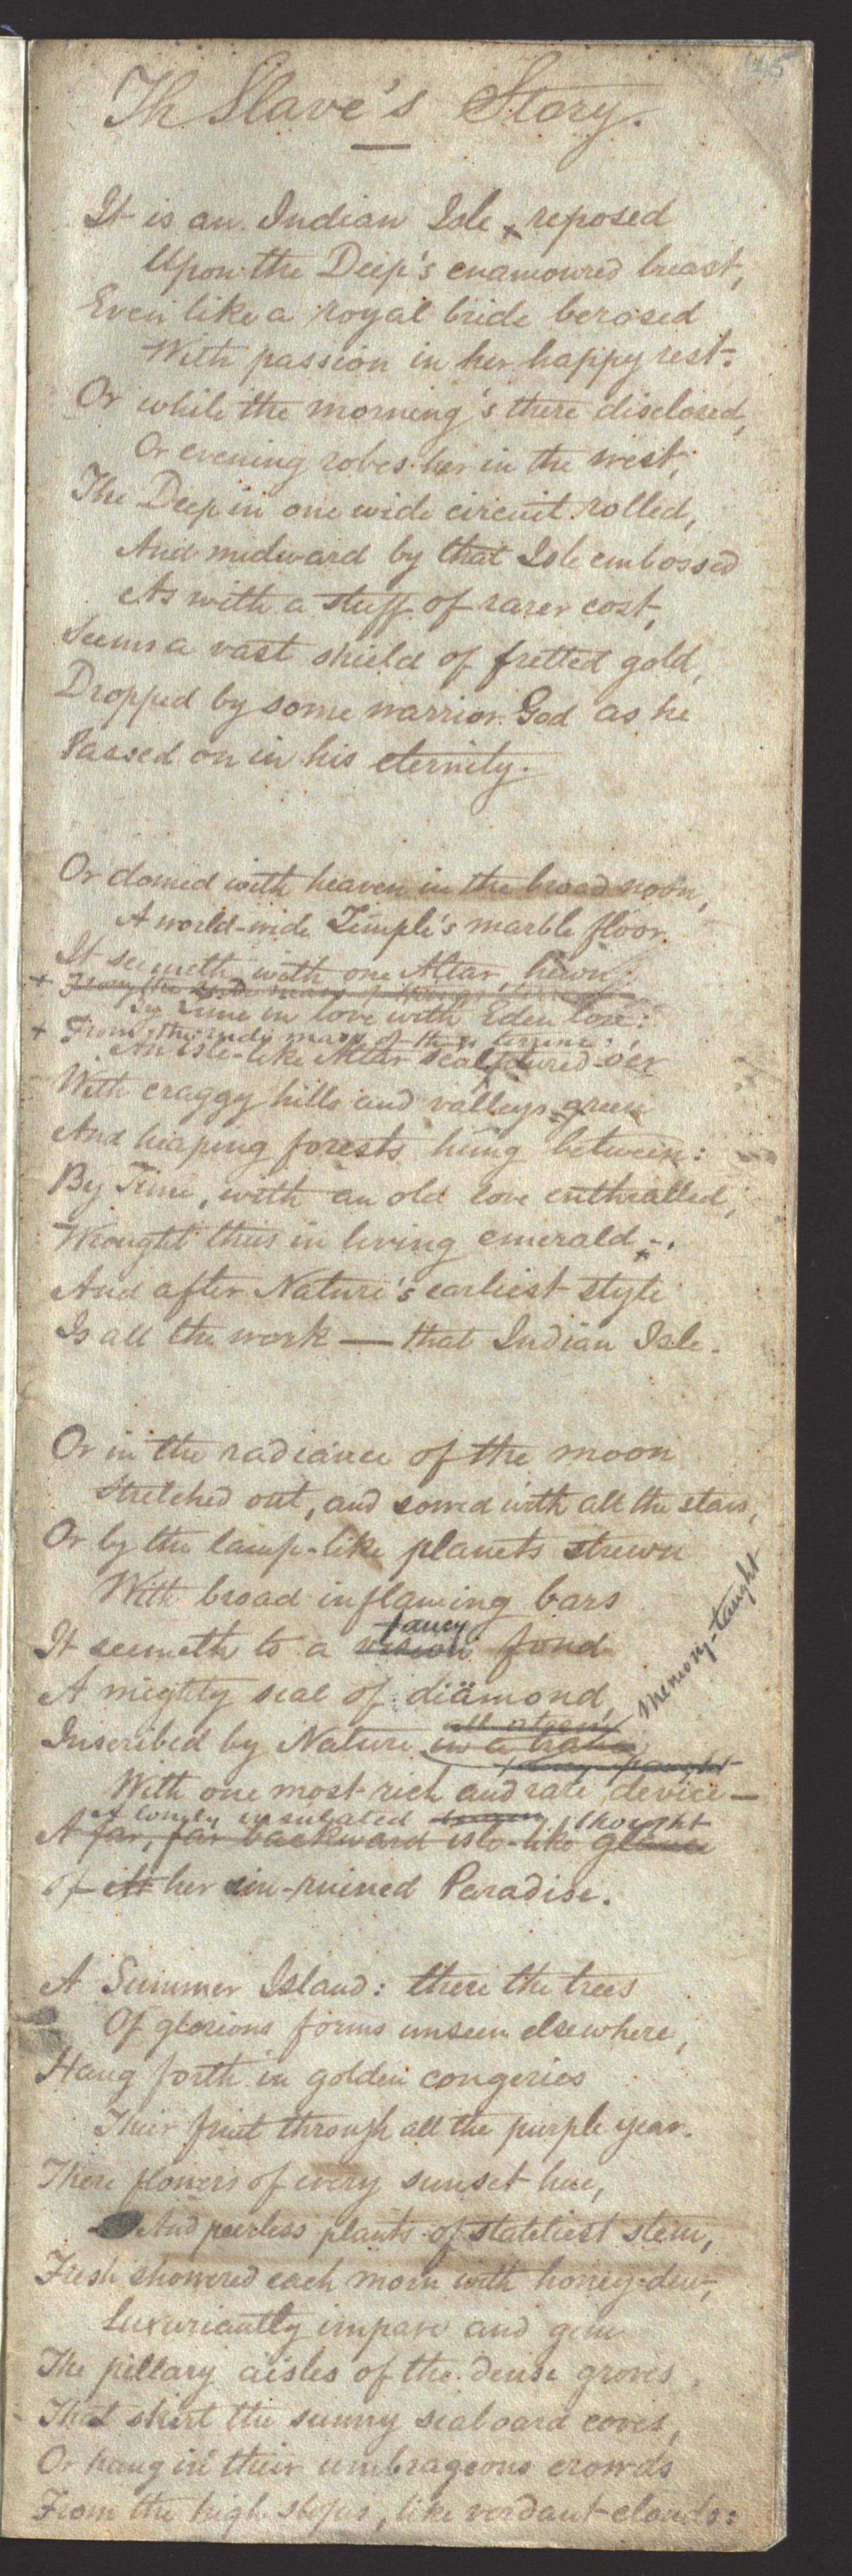 145
Th Slave's Story.
It is an Indian Isle, reposed
Upon the Deep's enamoured breast,
Even like a royal bride berosed
With passion in her happy rest:
Or while the morning's there disclosed,
Or evening robes her in the west,
The Deep in one wide circuit rolled,
And midward by that Isle embossed
As with a stuff of rarer cost,
Seems a vast shield of fretted gold,
Dropped by some warrior God as he
Passed on in his eternity.
Or domed with heaven in the broad noon,
A world-wide Temple's marble floor
It seemeth with one Altar, hewn
+ From the rude mass of things
By Time in love with Eden lore:
+ From the rude mass of things terrene;
An isle-like Altar sculptured o'er
With craggy hills and valleys green
And heaping forests hung between:
By Time, with an old love enthralled,
Wrought thus in living emerald;–.
And after Nature's earliest style
Is all the work — that Indian Isle.
Or in the radiance of the moon
Stretched out, and sowed with all the stars,
Or by the lamp-like planets strewn
With broad inflaming bars
fancy
It seemeth to a vision fond
A mighty seal of diämond,
Memory-taught
Inscribed by Nature in a
With one most rich and rare device —
A lonely insulated thought
A far, far backward isle-like glance
Of its her sin-ruined Paradise.
A Summer Island: there the trees
Of glorious forms unseen elsewhere,
Hang forth in golden congeries
Their fruit through all the purple year.
There flowers of every sunset hue,
And peerless plants of stateliest stem,
Fresh showered each morn with honey-dew,
Luxuriantly impave and gem
The pillary aisles of the dense groves
That skirt the sunny seaboard coves,
Or hang in their umbrageous crowds
From the high slopes, like verdant clouds: